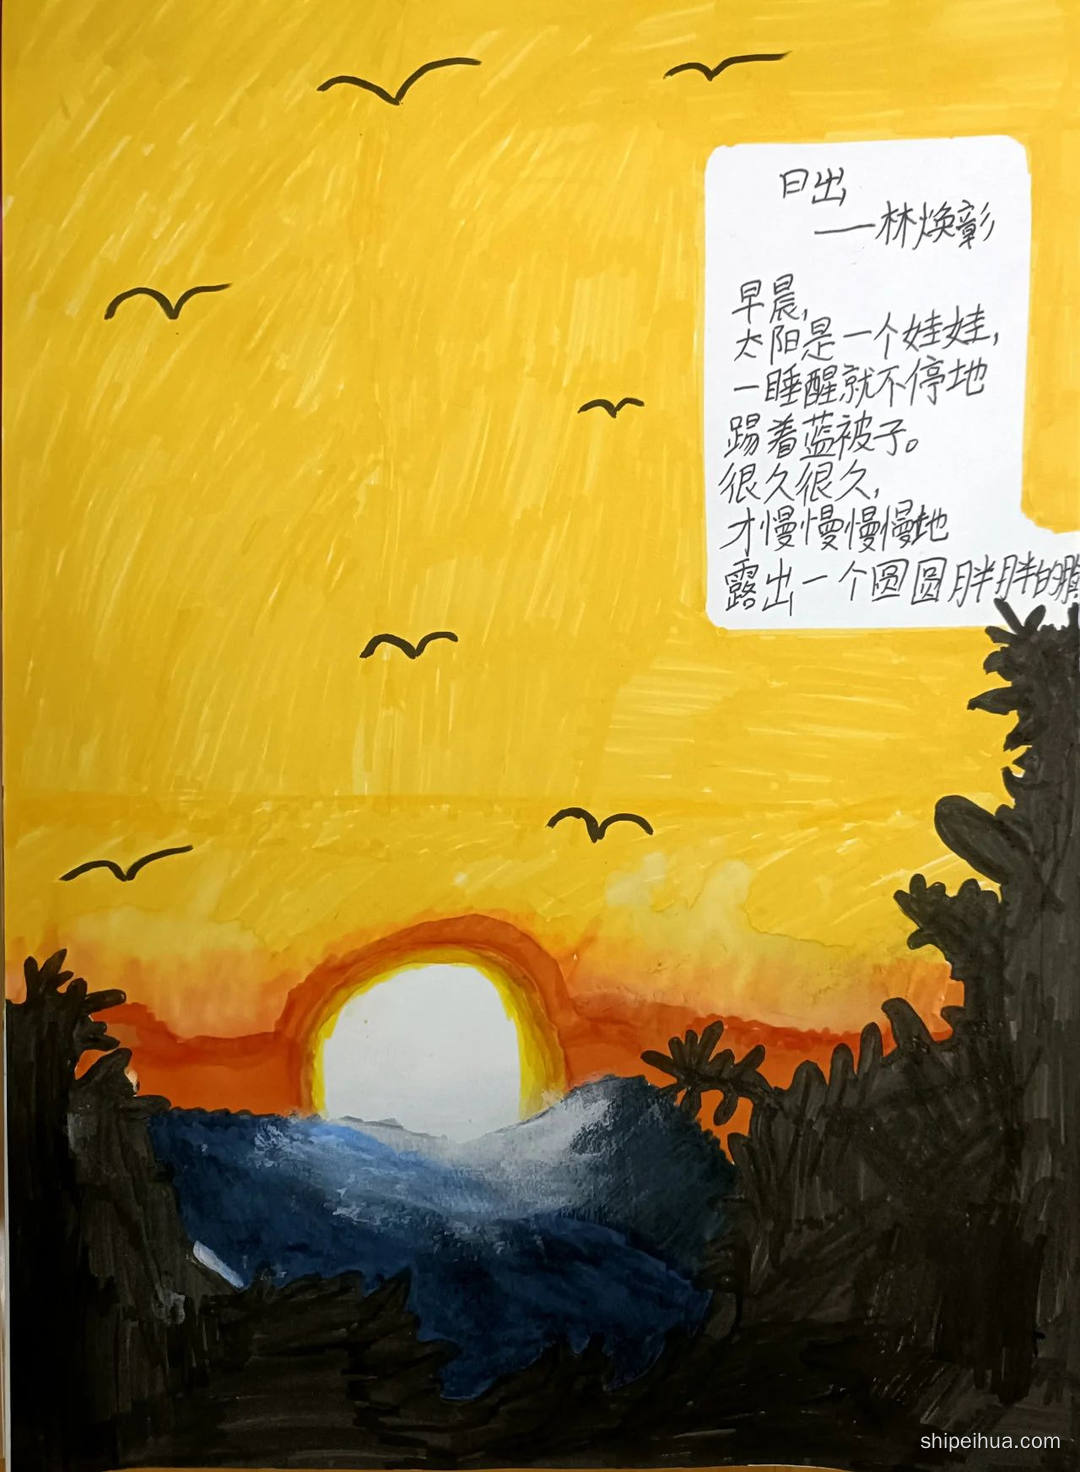 日出
——林焕彰
早晨,
太阳是一个娃娃,
一睡醒就不停地
踢着蓝被子。
很久很久,
才慢慢慢慢地
露出一个圆圆胖胖的
shipeihua.com